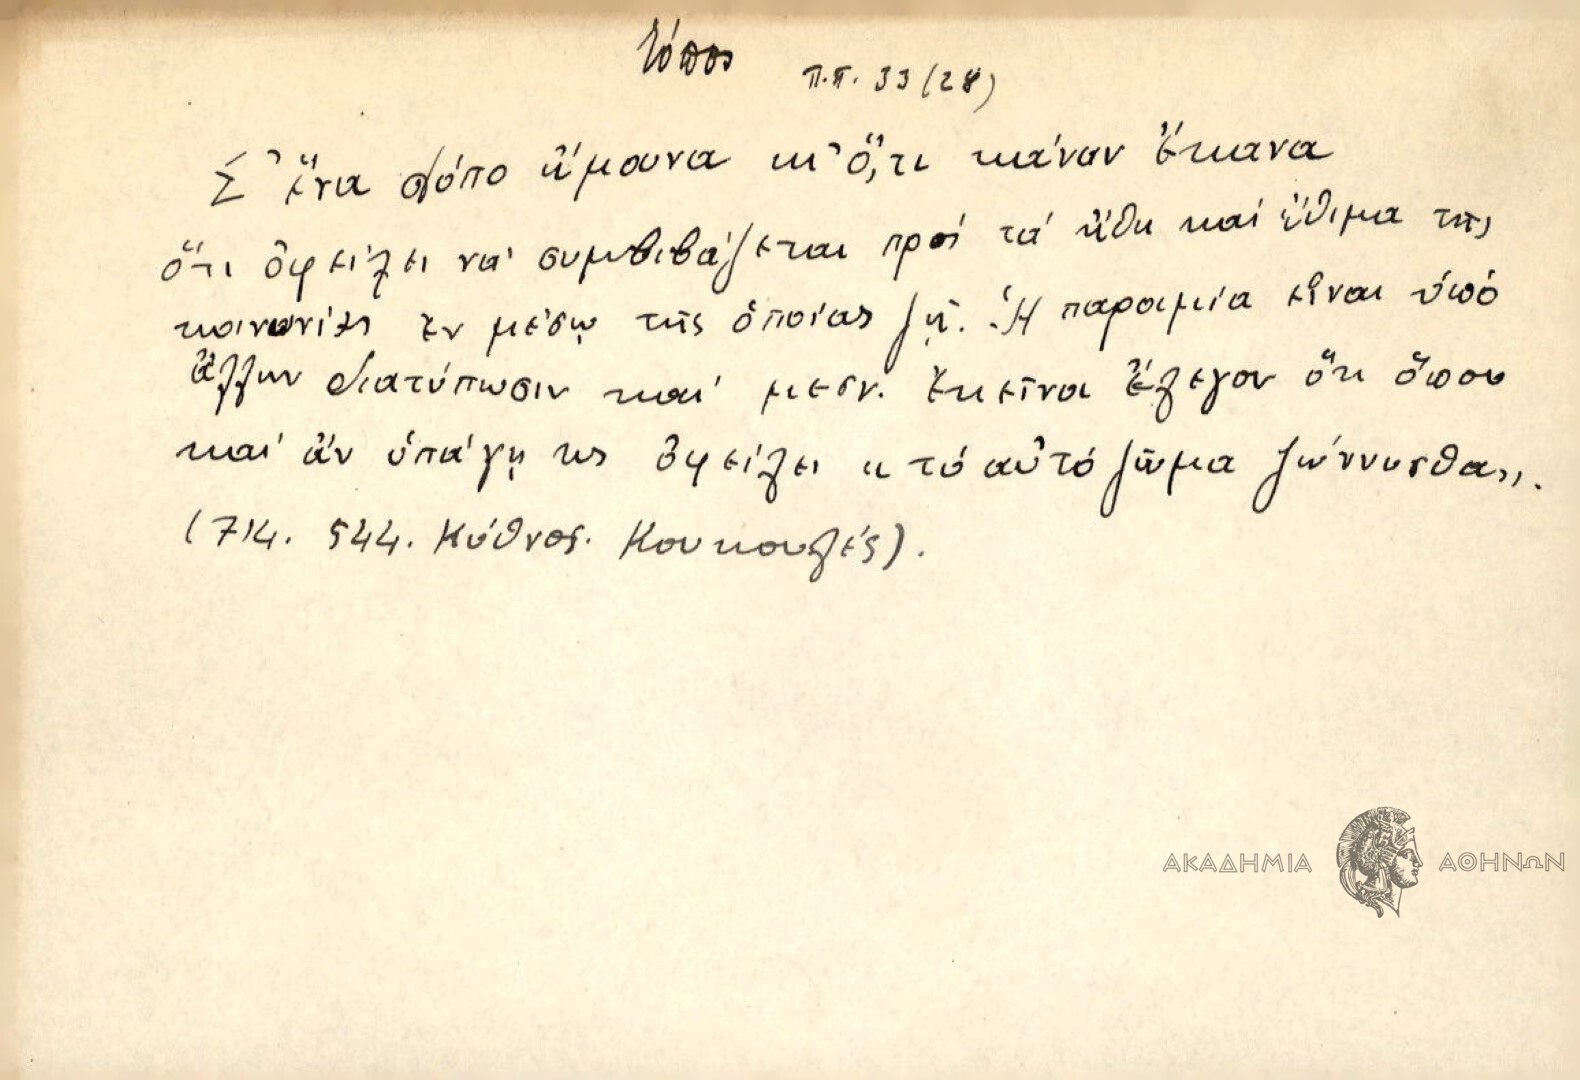 τόπος
π.π. 33 (28)
Σ' ἕνα τόπο ἤμουνα κι' ὅ,τι κάναν ἔκανα
ὅτι ὀφείλει νά συμβιβάζεται πρός τά ἤθη καί ἔθιμα τῆς
κοινωνίας ἐν μέσῳ τῆς ὁποίας ζῇ. Ἡ παροιμία εἶναι ὑπό
ἄλλην διατύπωσιν καί μεσν. ἐκεῖνοι ἔλεγον ὅτι ὅπου
καί ἄν ὑπάγῃ τις ὀφείλει «τό αὐτό ζῶμα ζώννυσθαι».
(714. 544. Κύθνος. Κουκουλές).
ΑΚΑΔΗΜΙΑ ΑΘΗΝΩΝ